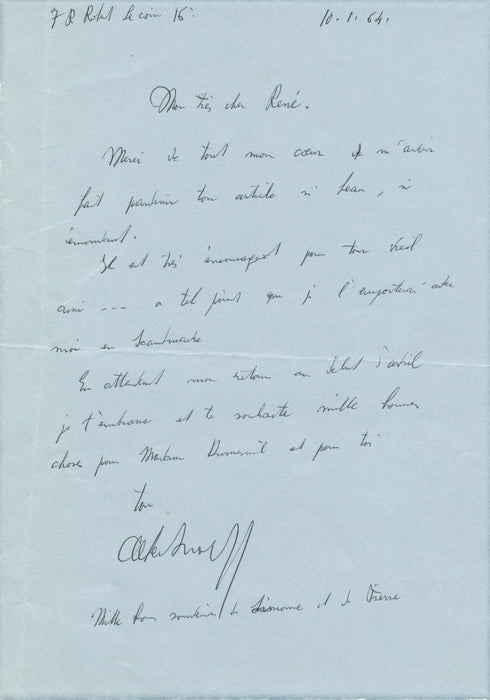 7 R Robert le coin 16e 10.1.64.
Mon très cher René.
Merci de tout mon cœur de m'avoir
fait parvenir ton article si beau, si
émouvant.
Il est très encourageant pour ton vieil
ami --- a tel point que je l'emporterai avec
moi en Scandinavie
En attendant mon retour au début d'avril
je t'embrasse et te souhaite mille bonnes
choses pour Madame Dumesnil et pour toi
ton
Mille bons souvenirs de et de Pierre